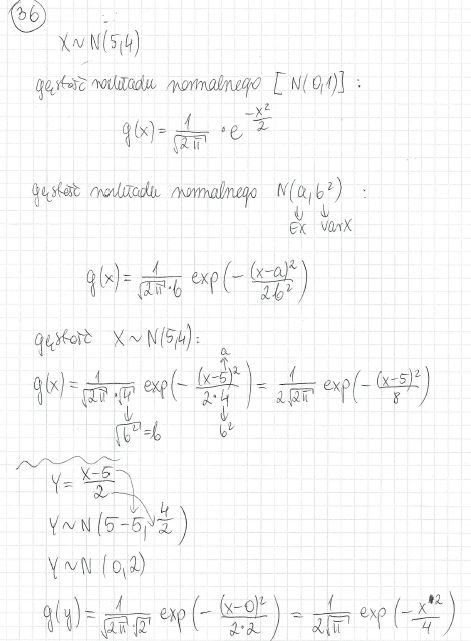 36
X ~ N(5,4)
gęstość rozkładu normalnego [N(0,1)] :
g(x) = 1/√2π · e^(-x²/2)
gęstość rozkładu normalnego N(a,b²) :
↓ ↓
EX VarX
g(x) = 1/(√2π·b) exp(-(x-a)²/(2b²))
gęstość X ~ N(5,4):
a
g(x) = 1/(√2π·√4) exp(-(x-5)²/(2·4)) = 1/(2√2π) exp(-(x-5)²/8)
√b² = b b²
Y = (x-5)/2
Y ~ N(5-5, 4/2)
Y ~ N(0,2)
g(y) = 1/(√2π √2) exp(-(x-0)²/(2·2)) = 1/(2√π) exp(-x²/4)